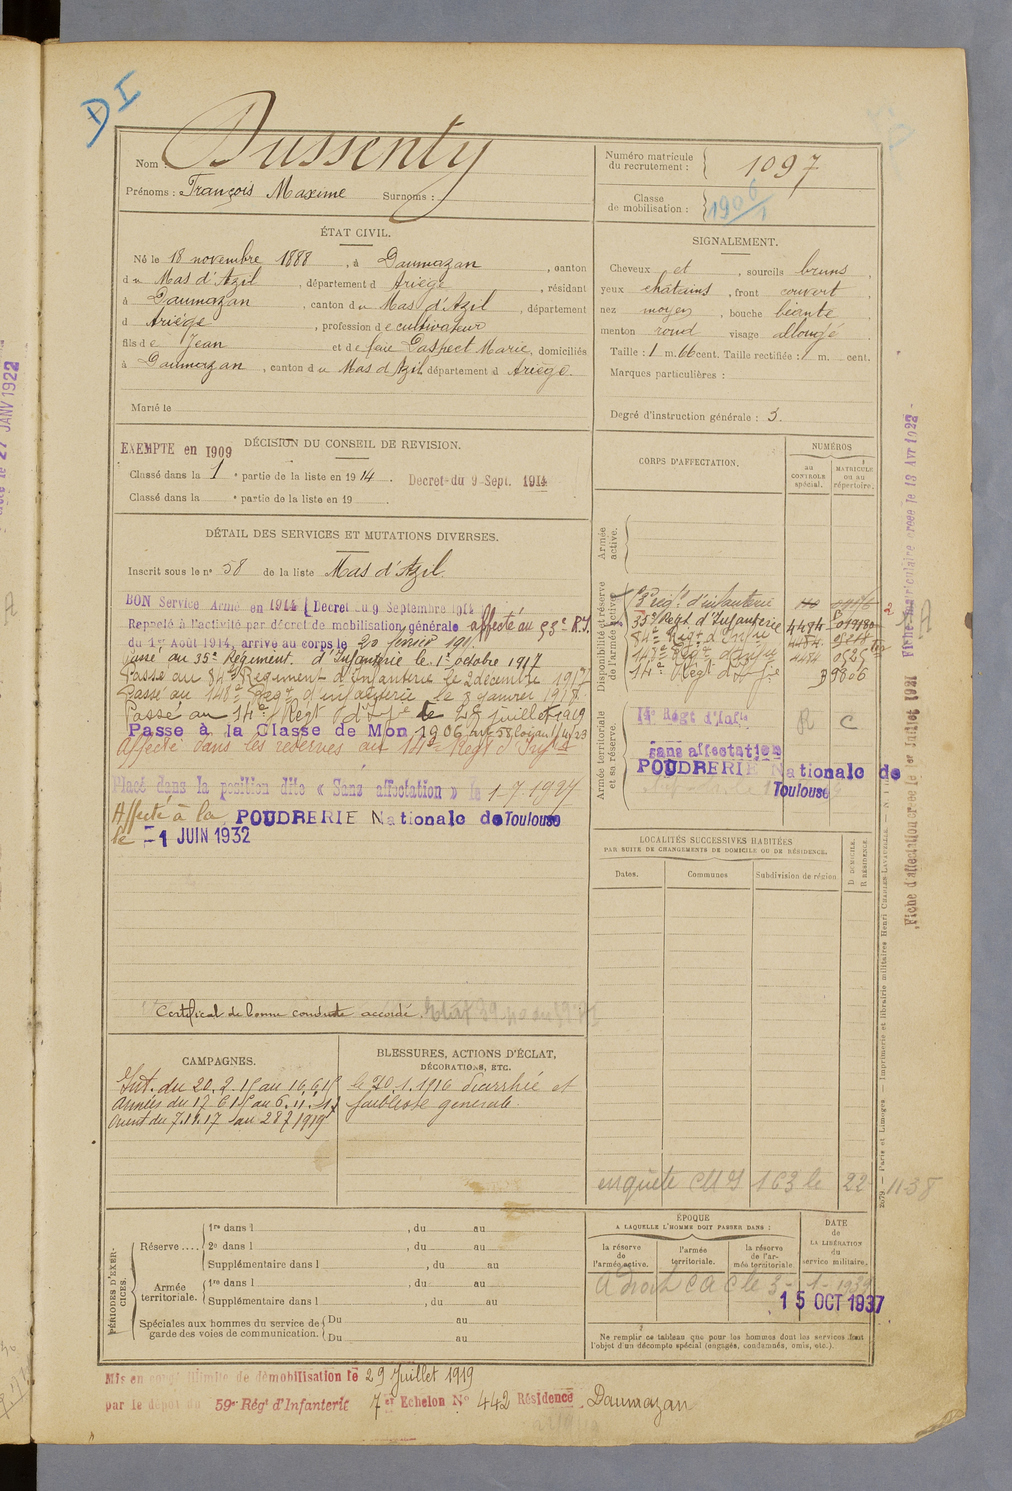 DI
Nom : Dussenty
Prénoms : François Maxime Surnoms :
Numéro matricule du recrutement : 1097
Classe de mobilisation : 1906/1
ÉTAT CIVIL.
Né le 18 novembre 1888, à Daumazan, canton
du Mas d'Azil, département d Ariège, résidant
à Daumazan, canton du Mas d'Azil, département
d Ariège, profession de cultivateur
fils de Jean et de feue Laspect Marie, domiciliés
à Daumazan, canton du Mas d'Azil département d Ariège.
Marié le
SIGNALEMENT.
Cheveux et, sourcils bruns,
yeux châtains, front couvert,
nez moyen, bouche béante,
menton rond visage allongé.
Taille : 1 m. 66 cent. Taille rectifiée : 1 m. cent.
Marques particulières :
Degré d'instruction générale : 3.
EXEMPTE en 1909
DÉCISION DU CONSEIL DE REVISION.
Classé dans la 1e partie de la liste en 1914. Decret du 9 Sept. 1914
Classé dans la e partie de la liste en 19
DÉTAIL DES SERVICES ET MUTATIONS DIVERSES.
Inscrit sous le no 58 de la liste Mas d'Azil.
BON Service Armé en 1914 (Decret du 9 Septembre 1914
Rappelé à l'activité par décret de mobilisation générale affecté au 53e R.I.
du 1er Août 1914, arrivé au corps le 20 février 191
Passé au 35e Régiment d'Infanterie le 1er octobre 1917
Passé au 84e Régiment d'Infanterie le 2 décembre 1917
Passé au 148e Regt d'infanterie le 8 janvier 1918
Passé au 14e Regt d'Ie le 25 juillet 1919
Passe à la Classe de Mon 1906 Art 58 loi du 1/4/23
Affecté dans les réserves au 14e Regt d'Infie
Placé dans la position dite « Sans affectation » le 1-7-1927
Affecté à la POUDRERIE Nationale de Toulouse
le -1 JUIN 1932
Certificat de bonne conduite accordé.
CORPS D'AFFECTATION.
NUMÉROS
au CONTROLE spécial.
MATRICULE ou au répertoire.
Armée active.
Disponibilité et réserve de l'armée active.
53e Regt d'infanterie
35e Regt d'Infanterie 4484
84e Regt d'Infie 4484
148e Regt d'Infie 4484
14e Regt d'Ie
Armée territoriale et sa réserve.
14e Regt d'Infie R C
sans affectation
POUDRERIE Nationale de
Toulouse
LOCALITÉS SUCCESSIVES HABITÉES
PAR SUITE DE CHANGEMENTS DE DOMICILE OU DE RÉSIDENCE.
Dates. Communes Subdivision de région. D DOMICILE. R RÉSIDENCE.
CAMPAGNES.
Int. du 20.2.15 au 16.6.15
Armées du 17.6.15 au 6.11.17
Orient du 7.11.17 au 28 7 1919
BLESSURES, ACTIONS D'ÉCLAT,
DÉCORATIONS, ETC.
le 20.1.1916 diarrhée et
faiblesse générale.
enquête 163 le 22 1138
PÉRIODES D'EXERCICES.
Réserve.... 1re dans l , du au
2e dans l , du au
Supplémentaire dans l , du au
Armée territoriale. 1re dans l , du au
Supplémentaire dans l , du au
Spéciales aux hommes du service de garde des voies de communication. Du au
Du au
ÉPOQUE
A LAQUELLE L'HOMME DOIT PASSER DANS :
la réserve de l'armée active.
l'armée territoriale.
la réserve de l'armée territoriale
DATE de LA LIBÉRATION du service militaire.
A droit CAC le 3-1-1939
15 OCT 1937
Ne remplir ce tableau que pour les hommes dont les services font
l'objet d'un décompte spécial (engagés, condamnés, omis, etc.).
Mis en congé illimité de démobilisation le 29 Juillet 1919
par le dépôt du 59e Régt d'Infanterie 7e Echelon No 442 Résidence Daumazan
Fiche d'affectation créée le 1er Juillet 1921 Fiche matriculaire créée le 13 Avr 1922
2679 — Paris et Limoges — Imprimerie et librairie militaires Henri CHARLES-LAVAUZELLE.
27 JANV 1922